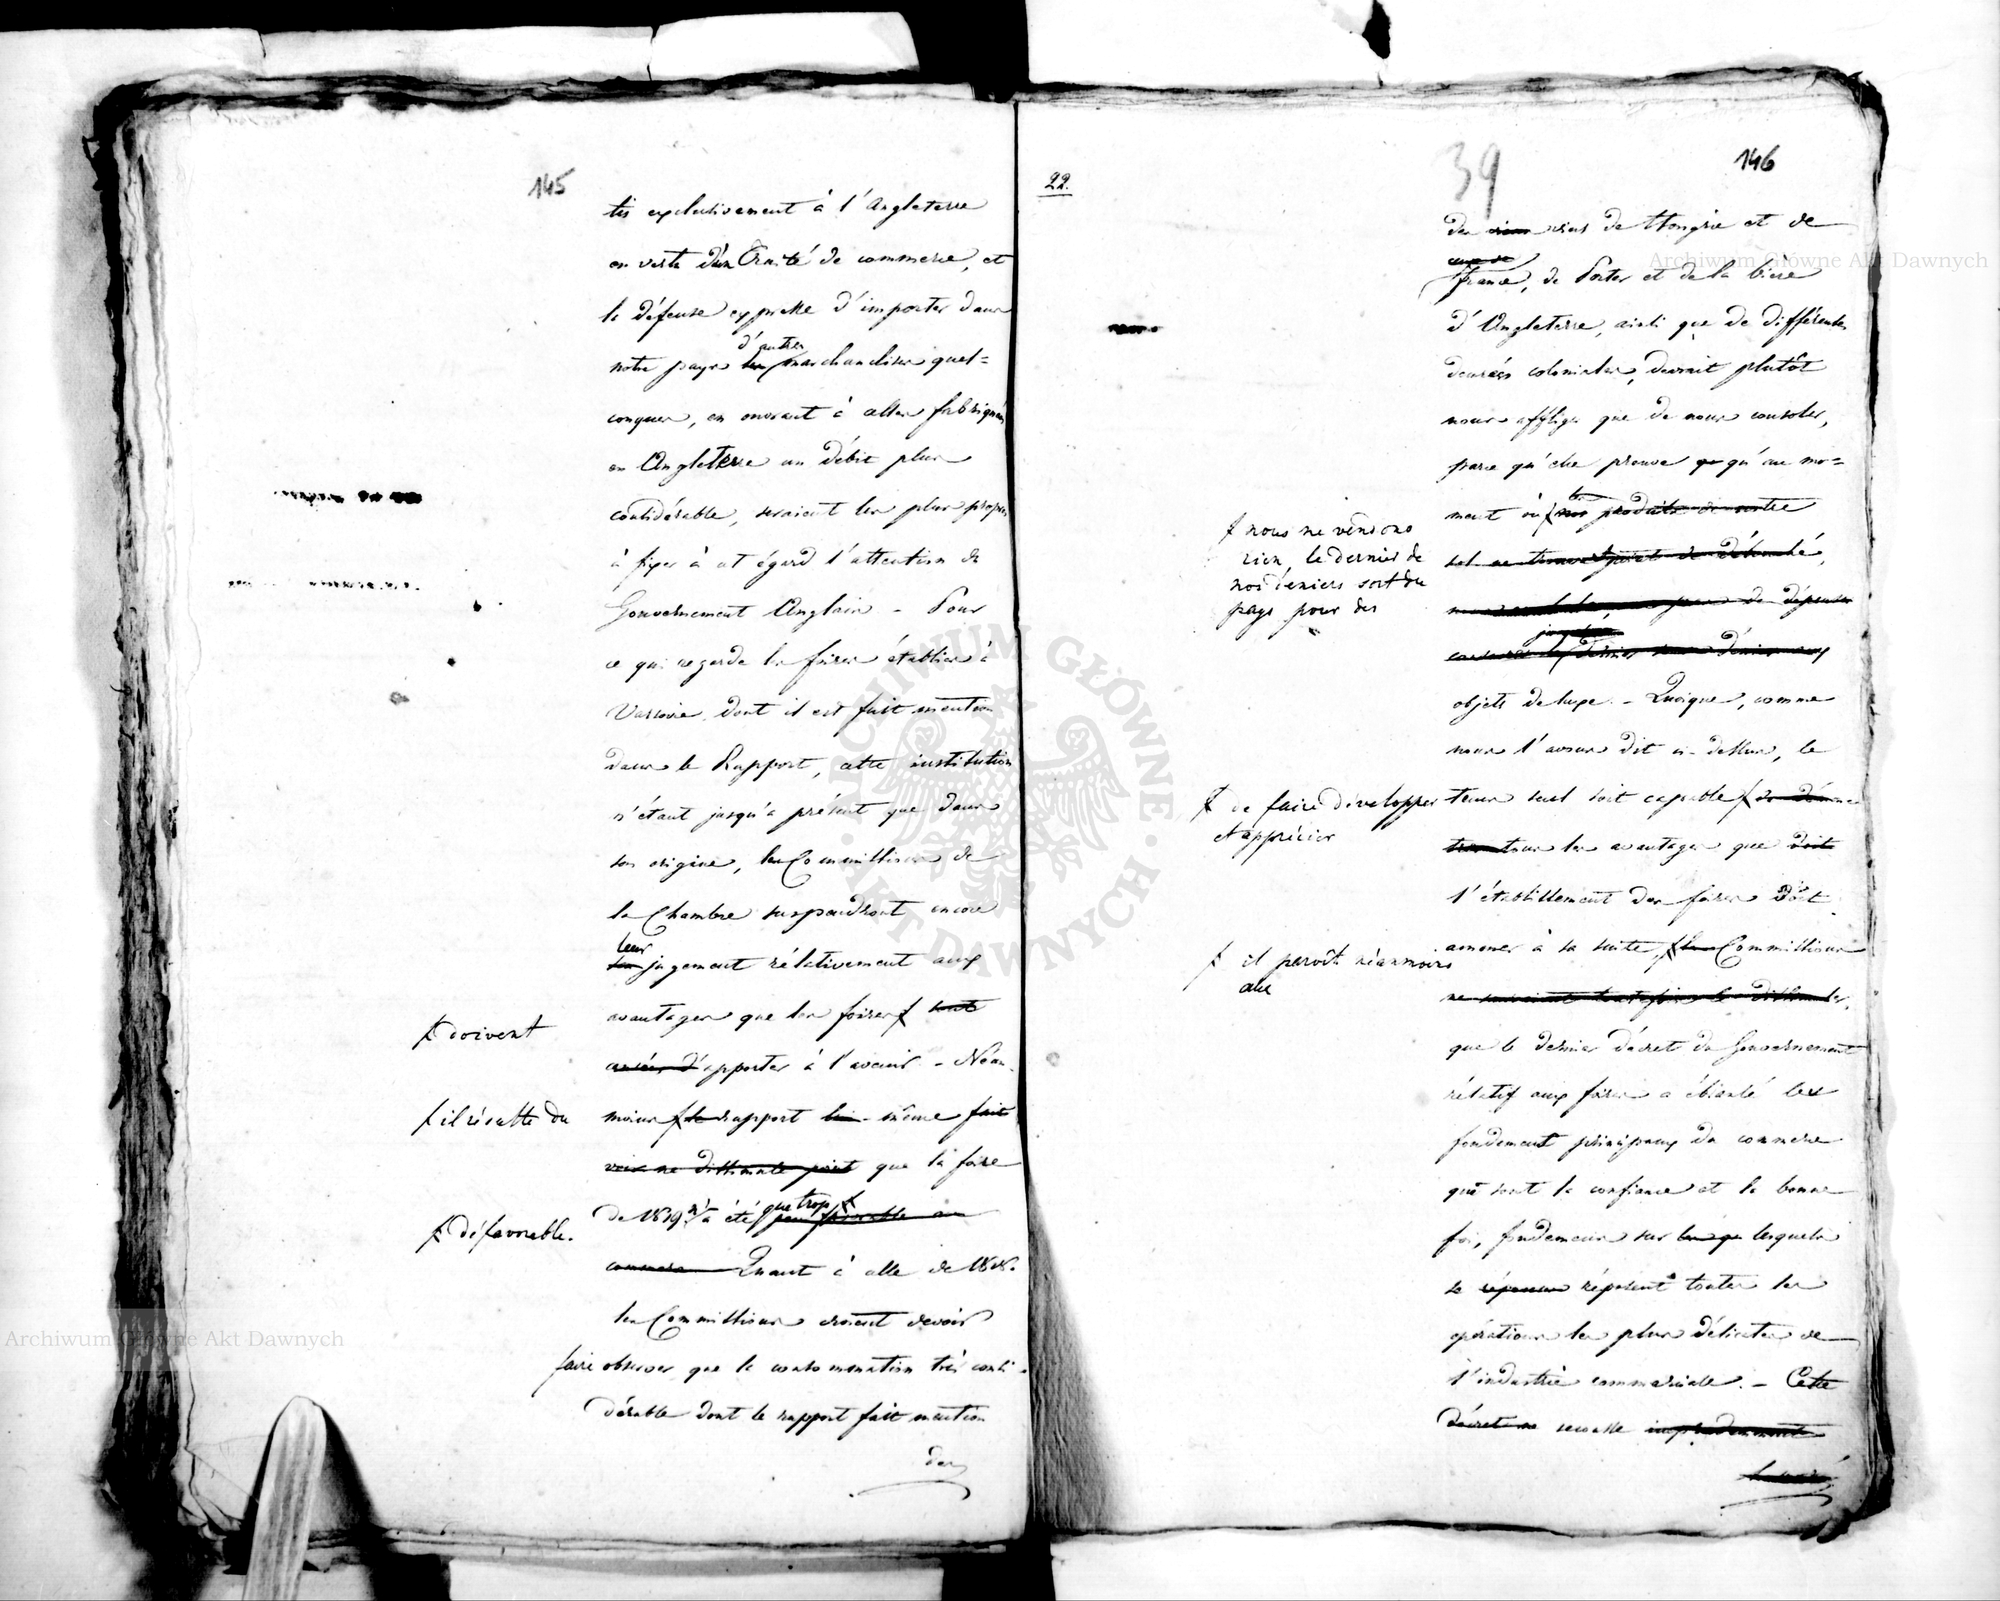 145
tis exclusivement à l'Angleterre
en vertu d'un Traité de commerce, et
la défense expresse d'importer dans
d'autres
notre pays les marchandises quel=
conques, en ouvrant à celles fabriquées
en Angleterre un débit plus
considérable, seraient les plus propres
à fixer à cet égard l'attention du
Gouvernement Anglais – Pour
ce qui regarde les foires établies à
Varsovie, dont il est fait mention
dans le Rapport, cette institution
n'étant jusqu'à présent que dans
son origine, les Commissions de
la Chambre suspendront encore
leur
jugement rélativement aux
avantages que les foires sont
doivent
apporter à l'avenir. – Néan-
il résulte du
moins le rapport lui-même fait
voir ne dissimule point que la foire
que trop
de 1819 n'a été peu favorable au
défavorable.
commerce Quant à celle de 1818.
les Commissions croient devoir
faire observer que la consommation très consi-
dérable dont le rapport fait mention
des
22.
39
146
des vins de Hongrie et de
ceux de
France, de Porter et de la bière
d'Angleterre, ainsi que de différentes
denrées coloniales, devrait plutôt
nous affliger que de nous consoler,
parce qu'elle prouve qu'au mo=
ment où nos produits de notre
sol ne trouvent point de débouché,
nous ne vendons
rien, le dernier de
nos deniers sort du
pays pour des
objets de luxe. – Quoique, comme
nous l'avons dit ci-dessus, le
tems seul soit capable
de faire développer
et apprécier
tous les avantages que doit
l'établissement des foires doit
amener à sa suite, les Commissions
il paroît néanmoins
aux
ne sauraient toutefois se dissimuler,
que le dernier décret du Gouvernement
rélatif aux foires a ébranlé les
fondement principaux du commerce
qui sont la confiance et la bonne
foi, fondemens sur lesquels
se réposent toutes les
opérations les plus délicates de
l'industrie commerciale. – Cette
décret ne recouvre imprudemment